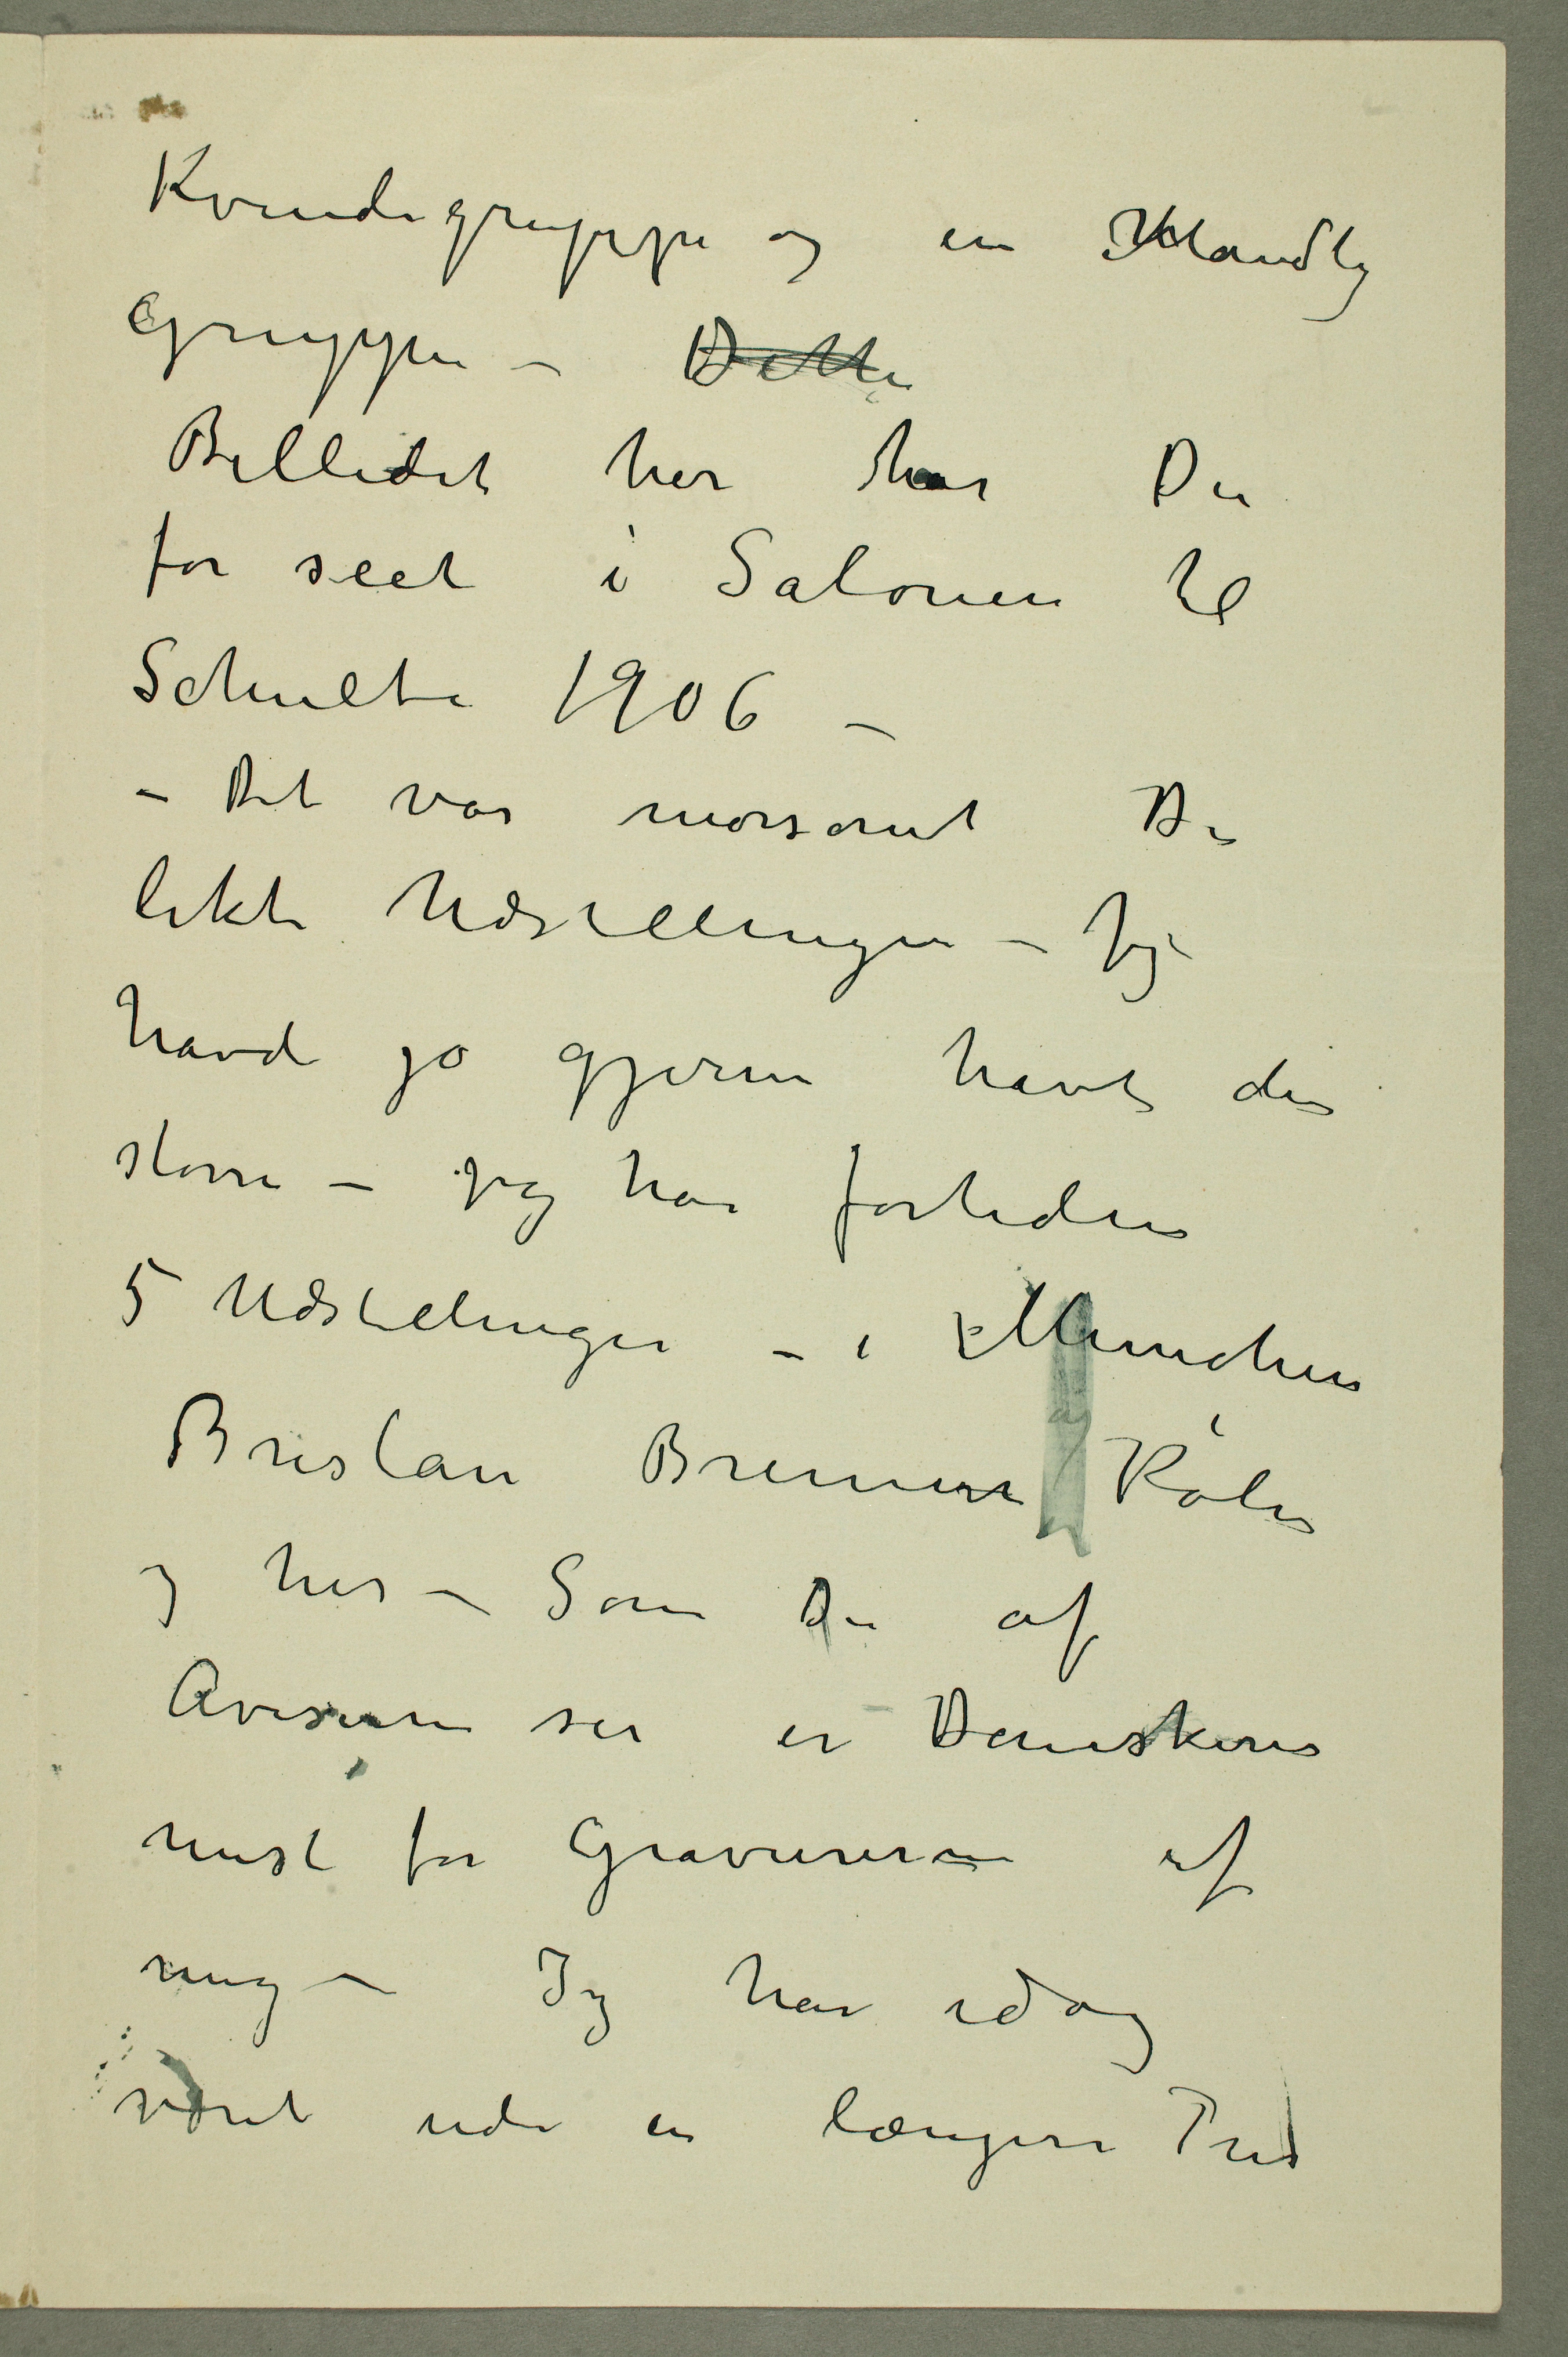 Kvindegruppe og en Mandlig
Gruppe – Dette
Billedet her har De
før seet i Salonen til
Schulte 1906 –
– Det var morsomt De
likte Udstillingen – Jeg
havde jo gjerne havt den
større – jeg har fortiden
5 Udstillinger – i Munchen
Breslau Bremen og Køln
og her – Som De af
Aviserne ser er Danskerne
mest for Gravurerne af
mig – Jeg har idag
været ude en længere Trid